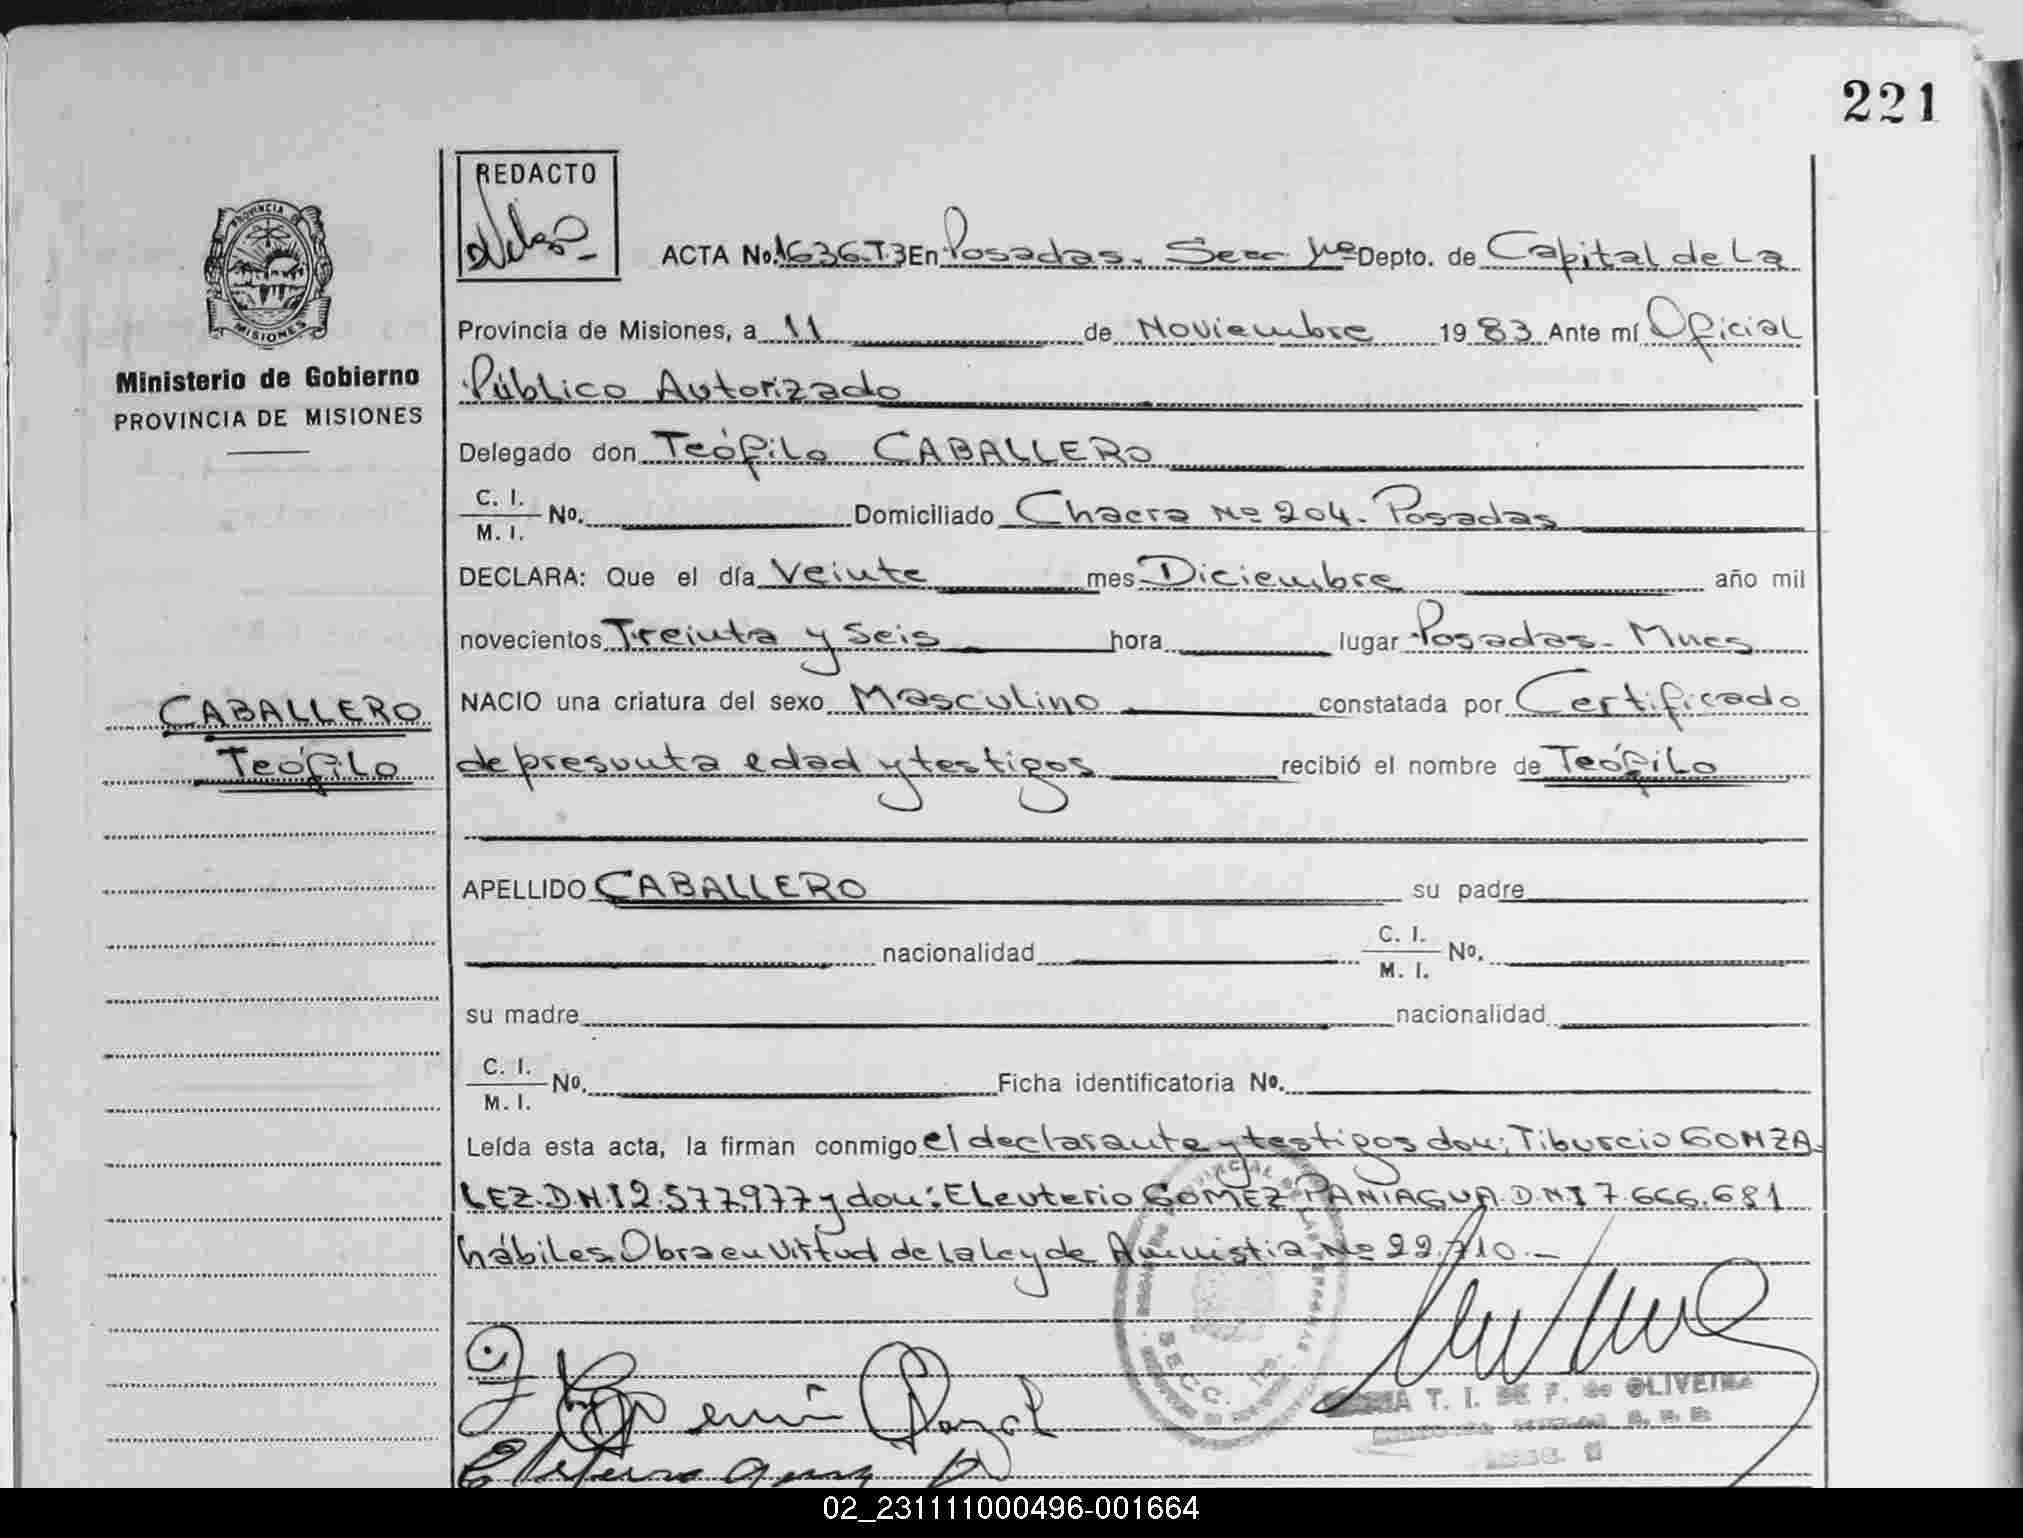 221
REDACTO
ACTA No. 1636-T.3 En Posadas, Secc 1ra Depto. de Capital de La
PROVINCIA DE
MISIONES
Provincia de Misiones, a 11 de Noviembre 1983 Ante mí Oficial
Ministerio de Gobierno
Público Autorizado
PROVINCIA DE MISIONES
Delegado don Teófilo CABALLERO
C. I.
M. I. No. Domiciliado Chacra Nº 204. Posadas
DECLARA: Que el día Veinte mes Diciembre año mil
novecientos Treinta y Seis hora lugar Posadas- Mnes
CABALLERO
NACIO una criatura del sexo Masculino constatada por Certificado
Teófilo
de presunta edad y testigos recibió el nombre de Teófilo
APELLIDO CABALLERO su padre
nacionalidad C. I.
M. I. No.
su madre nacionalidad
C. I.
M. I. No. Ficha identificatoria No.
Leída esta acta, la firman conmigo el declarante y testigos don; Tiburcio GONZA-
LEZ.D.N.I 2.577.977 y don: Eleuterio GOMEZ PANIAGUA.D.N.I 7.666.681
hábiles. Obra en Virtud de la Ley de Amnistia, Nº 22.710.-
T. I. DE F. de OLIVEIRA
02_231111000496-001664